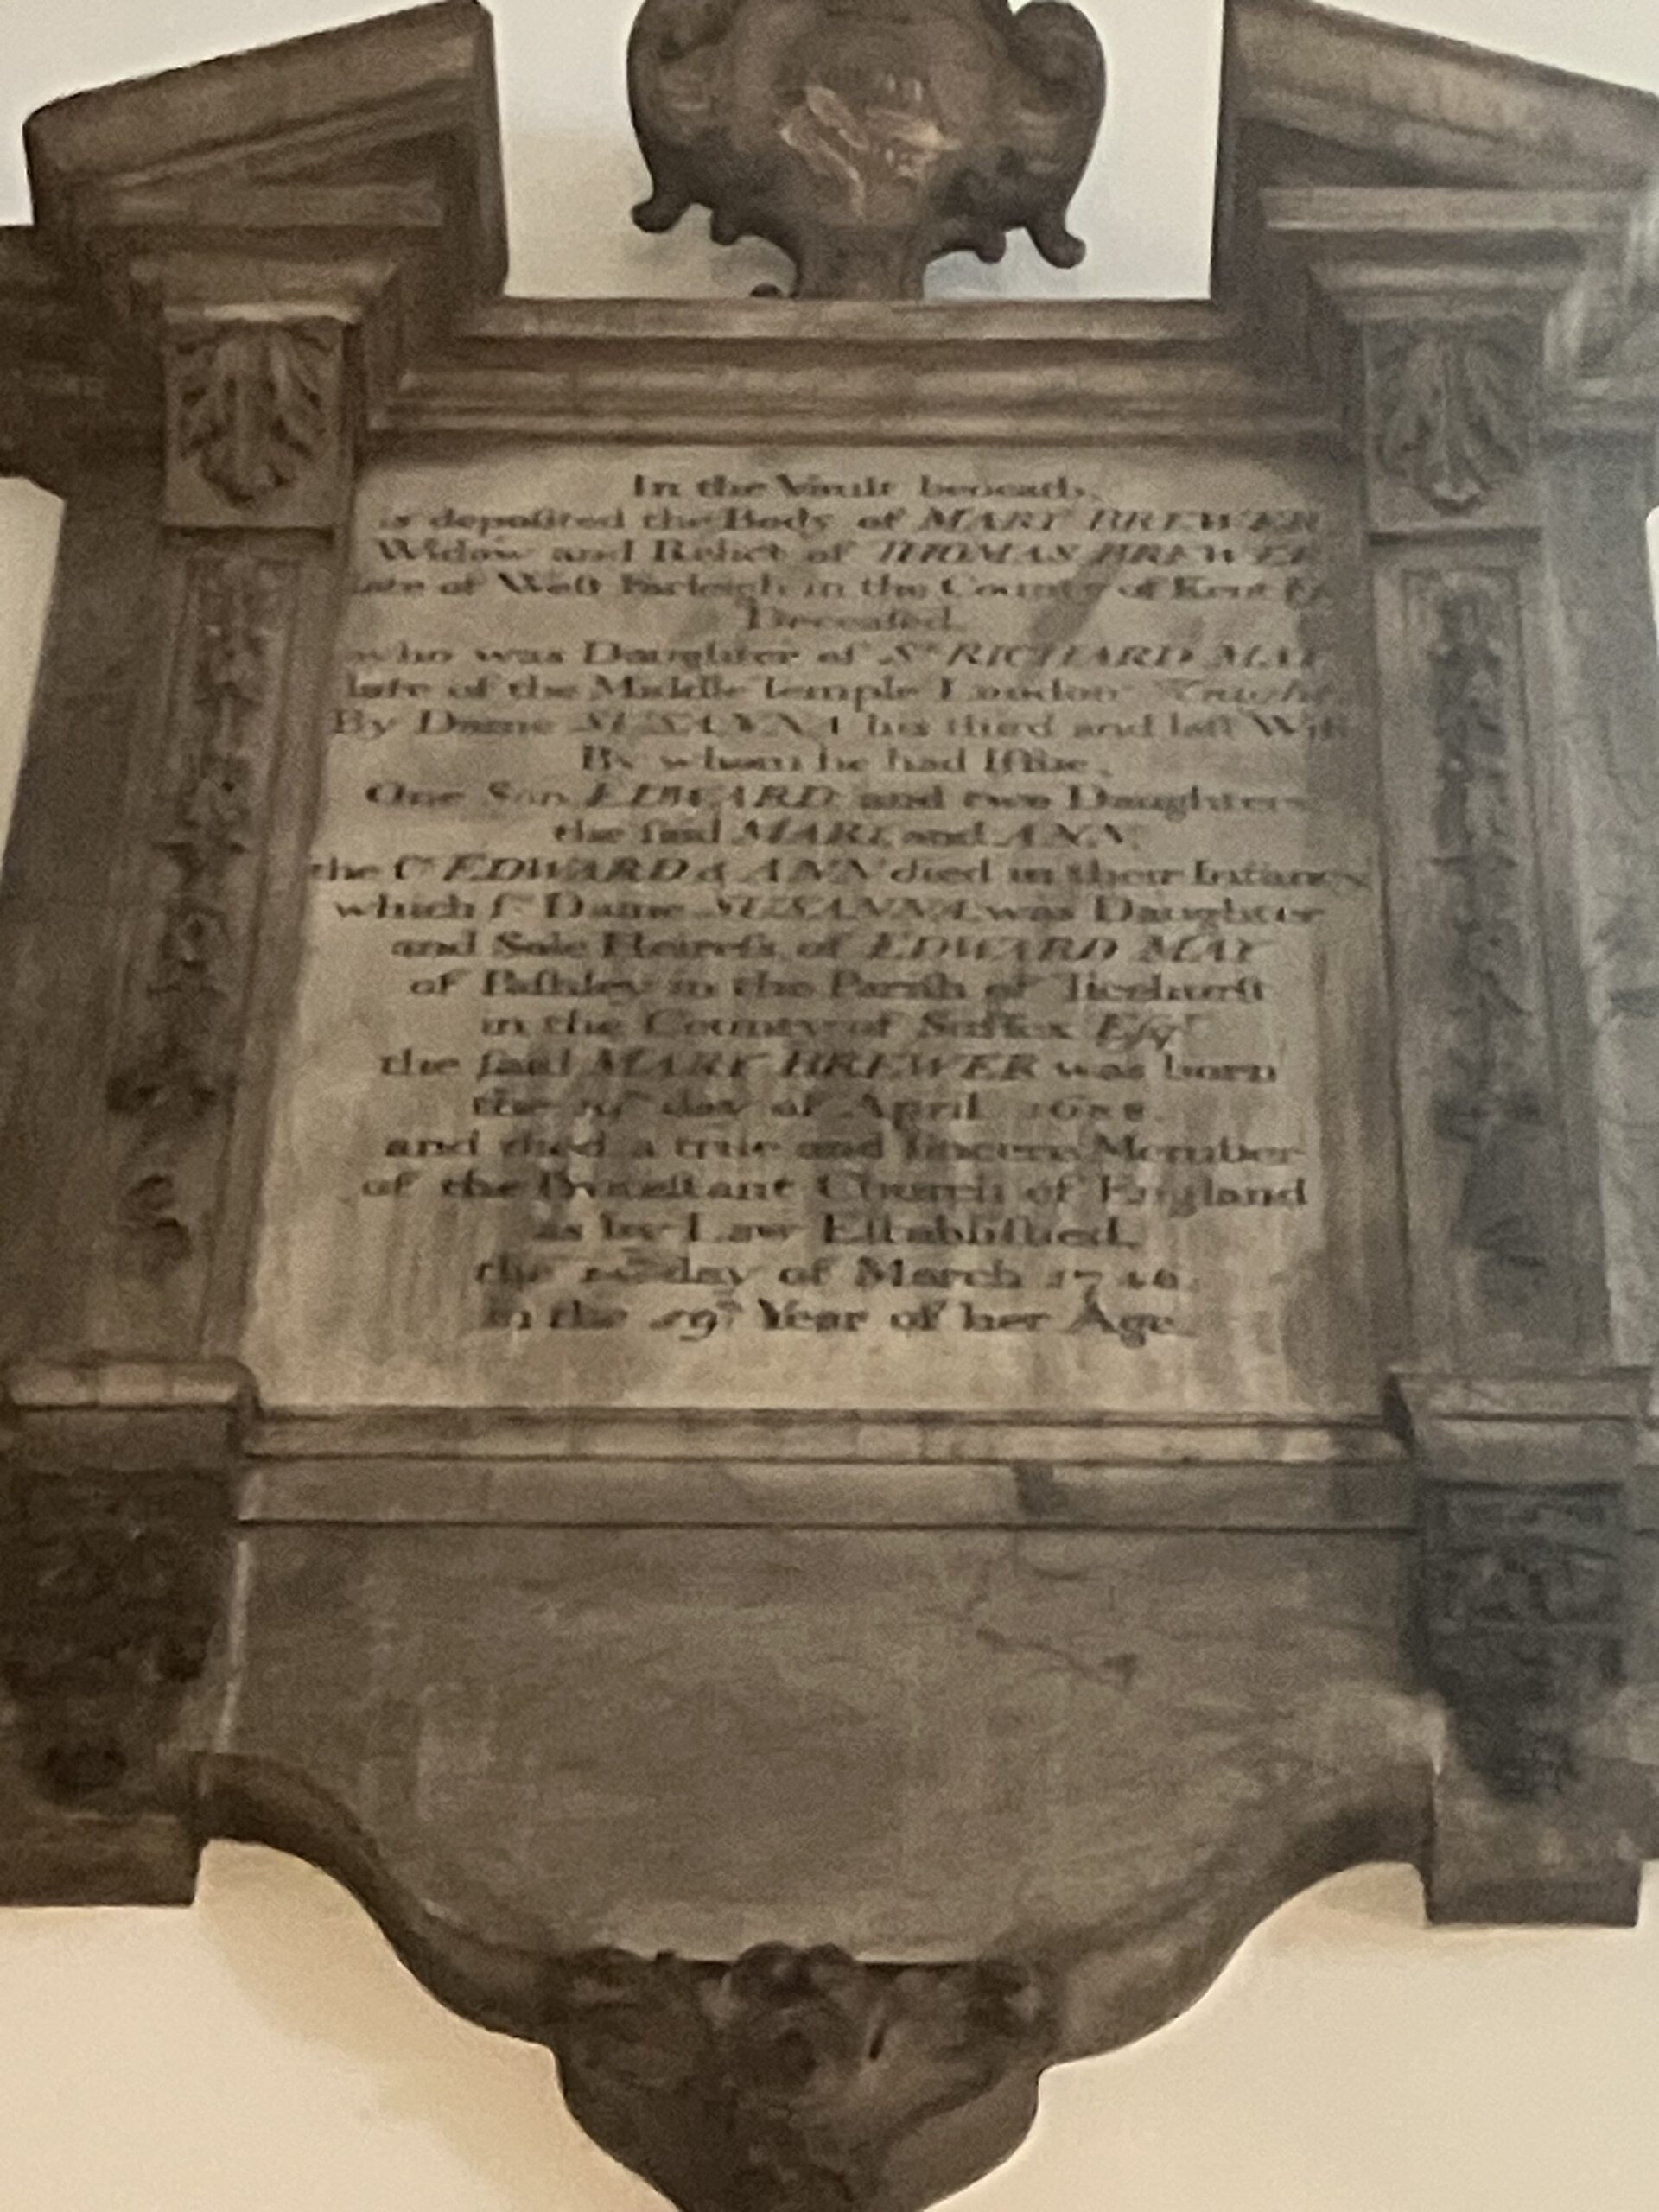 In the Vault beneath,
is deposited the Body of MARY BREWER
Widow and Relict of THOMAS BREWER
late of West Farleigh in the County of Kent
Deceased.
who was Daughter of Sr RICHARD MAY
late of the Middle Temple London
By Dame SUSANNA his third and last Wife
By whom he had Issue,
One Son EDWARD and two Daughters
the said MARY and ANN,
the sd EDWARD & ANN died in their Infancy
which sd Dame SUSANNA was Daughter
and Sole Heiress of EDWARD MAY
of Pashley in the Parish of Ticehurst
in the County of Sussex Esqr
the said MARY BREWER was born
the day of April 1688.
and died a true and sincere Member
of the Protestant Church of England
as by Law Established,
the day of March
in the 59th Year of her Age